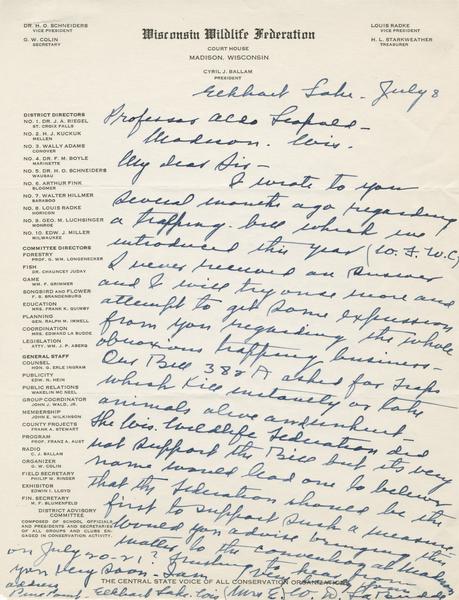 DR. H. O. SCHNEIDERS
VICE PRESIDENT
G. W. COLIN
SECRETARY
Wisconsin Wildlife Federation
COURT HOUSE
MADISON, WISCONSIN
CYRIL J. BALLAM
PRESIDENT
LOUIS RADKE
VICE PRESIDENT
H. L. STARKWEATHER
TREASURER
DISTRICT DIRECTORS
NO. 1. DR. J. A. RIEGEL
ST. CROIX FALLS
NO. 2. H. J. KUCKUK
MELLEN
NO. 3. WALLY ADAMS
CONOVER
NO. 4. DR. F. M. BOYLE
MARINETTE
NO. 5. DR. H. O. SCHNEIDERS
WAUSAU
NO. 6. ARTHUR FINK
BLOOMER
NO. 7. WALTER HILLMER
BARABOO
NO. 8. LOUIS RADKE
HORICON
NO. 9. GEO. M. LUCHSINGER
MONROE
NO. 10. EDW. J. MILLER
MILWAUKEE
COMMITTEE DIRECTORS
FORESTRY
PROF. G. WM. LONGENECKER
FISH
DR. CHAUNCEY JUDAY
GAME
WM. F. GRIMMER
SONGBIRD AND FLOWER
F. S. BRANDENBURG
EDUCATION
MRS. FRANK K. QUIMBY
PLANNING
GEN. RALPH M. IMMELL
COORDINATION
MRS. EDWARD LA BUDDE
LEGISLATION
ATTY. WM. J. P. ABERG
GENERAL STAFF
COUNSEL
HON. G. ERLE INGRAM
PUBLICITY
EDW. N. HEIN
PUBLIC RELATIONS
WAKELIN MC NEEL
GROUP COORDINATOR
JOHN J. WALD, JR.
MEMBERSHIP
JOHN E. WILKINSON
COUNTY PROJECTS
FRANK A. STEWART
PROGRAM
PROF. FRANZ A. AUST
RADIO
C. J. BALLAM
ORGANIZER
G. W. COLIN
FIELD SECRETARY
PHILIP W. RINGER
EXHIBITOR
EDWIN I. LLOYD
FIN. SECRETARY
M. F. BLUMENFELD
DISTRICT ADVISORY
COMMITTEE
COMPOSED OF SCHOOL OFFICIALS
AND PRESIDENTS AND SECRETARIES
OF ALL GROUPS AND CLUBS ENGAGED IN CONSERVATION ACTIVITY.
Elkhart Lake - July 8
Professor Aldo Leopold -
Madison. Wis.
My dear Sir -
I wrote to you
several months ago regarding
a trapping bill which we
introduced this year (W. F. W. C)
I never received an answer
and I will try once more and
attempt to get some expression
from you regarding this whole
obnoxious trapping business -
Our Bill 388 A asked for traps
which kill instantly or take
animals alive and unhurt.
The Wis. Wildlife Federation did
not support the Bill but its very
name would lead one to believe
that the Federation should be the
first to support such a measure.
Would you advise bringing this
matter to the convention at
on July 20-21? Trusting to hear from
you very soon. I am
address
Pine Point - Elkhart Lake - Wis Mrs E. W.
THE CENTRAL STATE VOICE OF ALL CONSERVATION ORGANIZATIONS